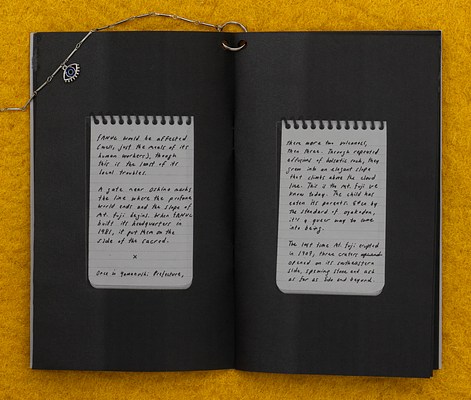 FANUC would be affected
(well, just the meals of its
human workers), though
this is the least of its
local troubles.
A gate near Oshino marks
the line where the profane
world ends and the slope of
Mt. Fuji begins. When FANUC
built its headquarters in
1981, it put them on the
side of the sacred.
×
Once in Yamanashi Prefecture,
there were two volcanoes,
then three. Through repeated
effusions of balsatic rock, they
grew into an elegant slope
that climbs above the cloud
line. This is the Mt. Fuji we
know today. The child has
eaten its parents. Even by
the standard of oyakodon,
it's a queer way to come
into being.
The last time Mt. Fuji erupted
in 1707, three craters
opened on its southeastern
side, spewing stone and ash
as far as Edo and beyond.